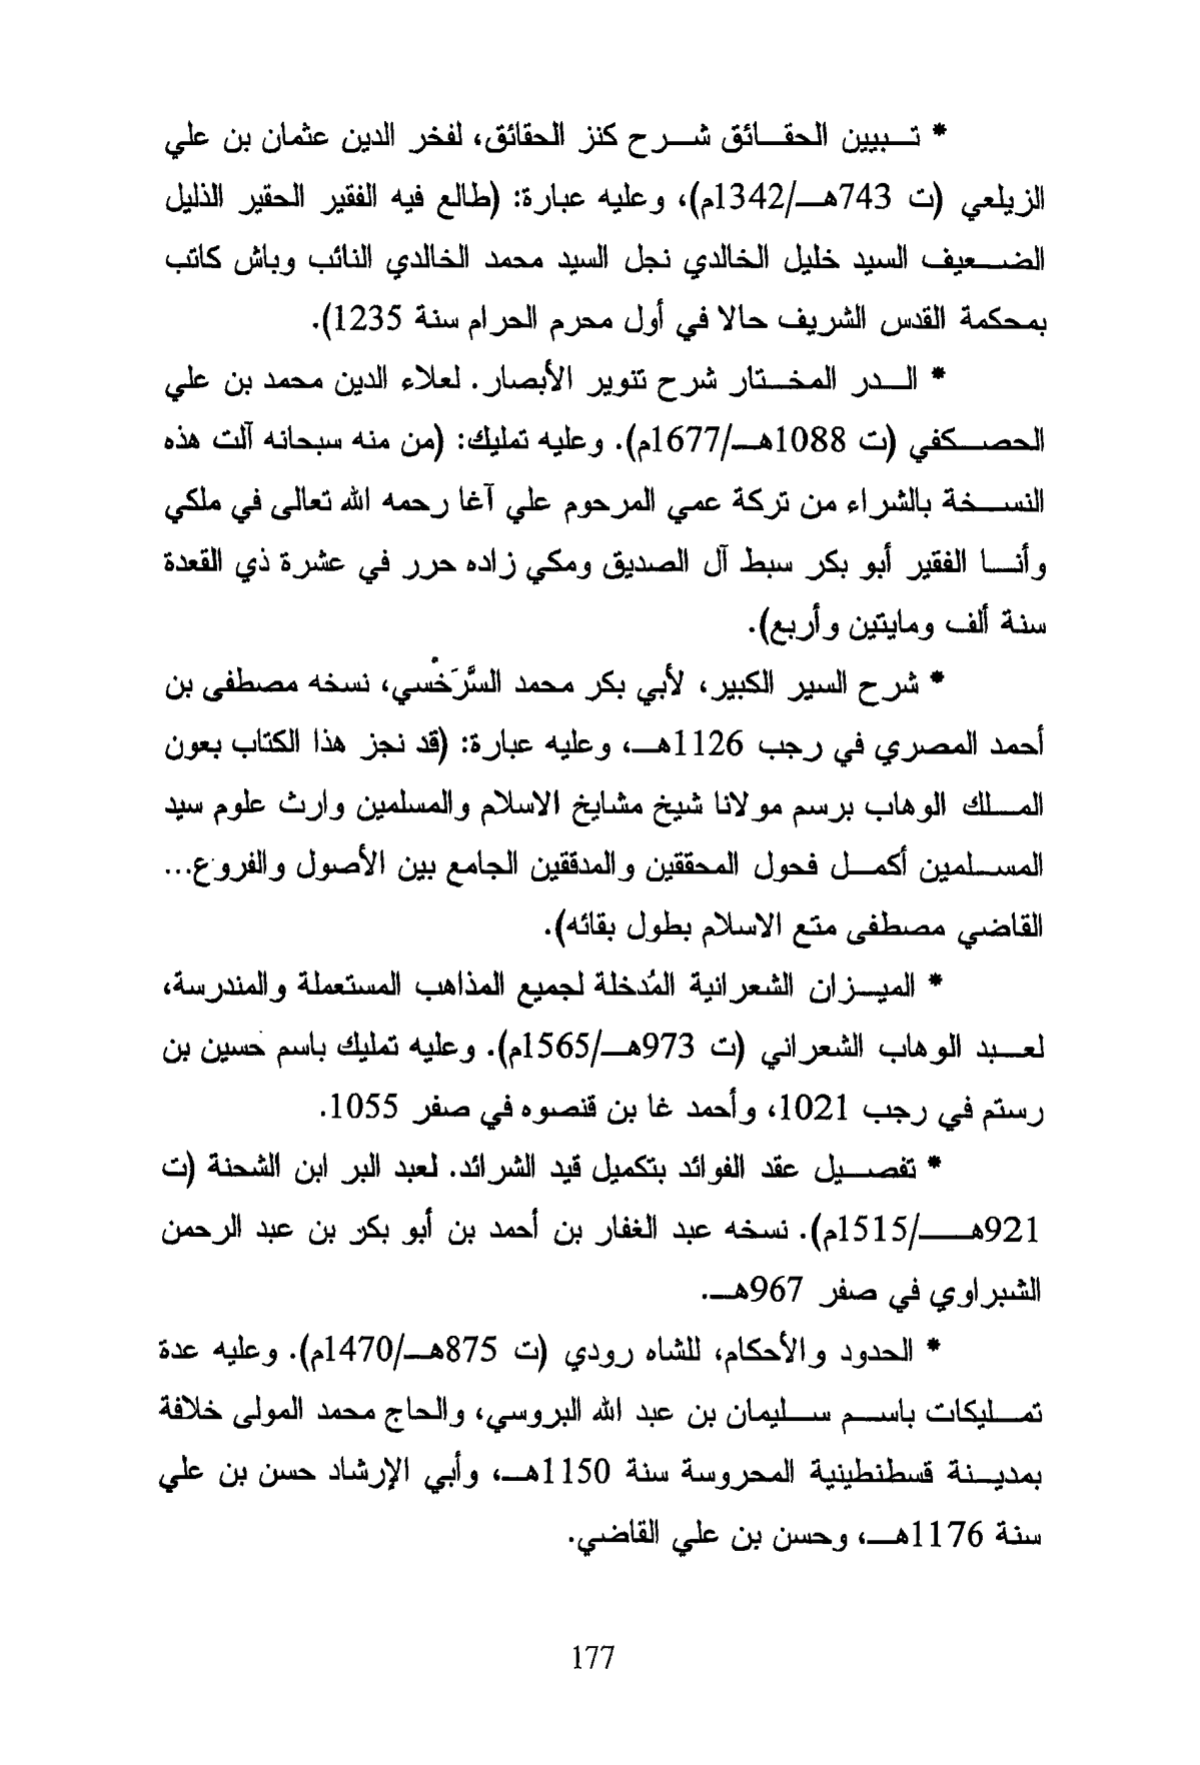 * تبيين الحقائق شرح كنز الحقائق، لفخر الدين عثمان بن علي
الزيلعي (ت 743هـ/1342م)، وعليه عبارة: (طالع فيه الفقير الحقير الذليل
الضعيف السيد خليل الخالدي نجل السيد محمد الخالدي النائب وباش كاتب
بمحكمة القدس الشريف حالا في أول محرم الحرام سنة 1235).
* الدر المختار شرح تنوير الأبصار. لعلاء الدين محمد بن علي
الحصكفي (ت 1088هـ/1677م). وعليه تمليك: (من منه سبحانه آلت هذه
النسخة بالشراء من تركة عمي المرحوم علي آغا رحمه الله تعالى في ملكي
وأنا الفقير أبو بكر سبط آل الصديق ومكي زاده حرر في عشرة ذي القعدة
سنة ألف ومايتين وأربع).
* شرح السير الكبير، لأبي بكر محمد السَّرَخْسي، نسخه مصطفى بن
أحمد المصري في رجب 1126هـ، وعليه عبارة: (قد نجز هذا الكتاب بعون
الملك الوهاب برسم مولانا شيخ مشايخ الاسلام والمسلمين وارث علوم سيد
المسلمين أكمل فحول المحققين والمدققين الجامع بين الأصول والفروع...
القاضي مصطفى متع الاسلام بطول بقائه).
* الميزان الشعرانية المُدخلة لجميع المذاهب المستعملة والمندرسة،
لعبد الوهاب الشعراني (ت 973هـ/1565م). وعليه تمليك باسم حسين بن
رستم في رجب 1021، وأحمد غا بن قنصوه في صفر 1055.
* تفصيل عقد الفوائد بتكميل قيد الشرائد. لعبد البر ابن الشحنة (ت
921هـ/1515م). نسخه عبد الغفار بن أحمد بن أبو بكر بن عبد الرحمن
الشبراوي في صفر 967هـ.
* الحدود والأحكام، للشاه رودي (ت 875هـ/1470م). وعليه عدة
تمليكات باسم سليمان بن عبد الله البروسي، والحاج محمد المولى خلافة
بمدينة قسطنطينية المحروسة سنة 1150هـ، وأبي الإرشاد حسن بن علي
سنة 1176هـ، وحسن بن علي القاضي.
177